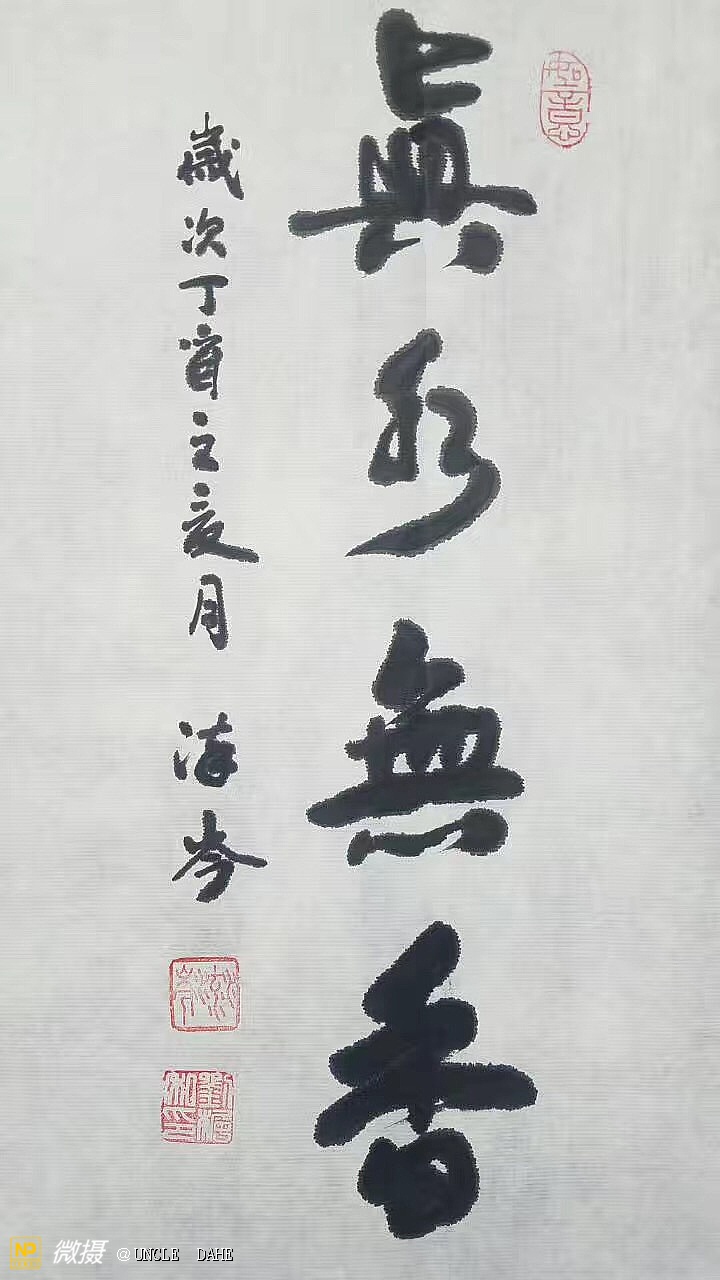 真水無香
歲次丁酉之夏月 海岑
微摄 @UNCLE DAHE